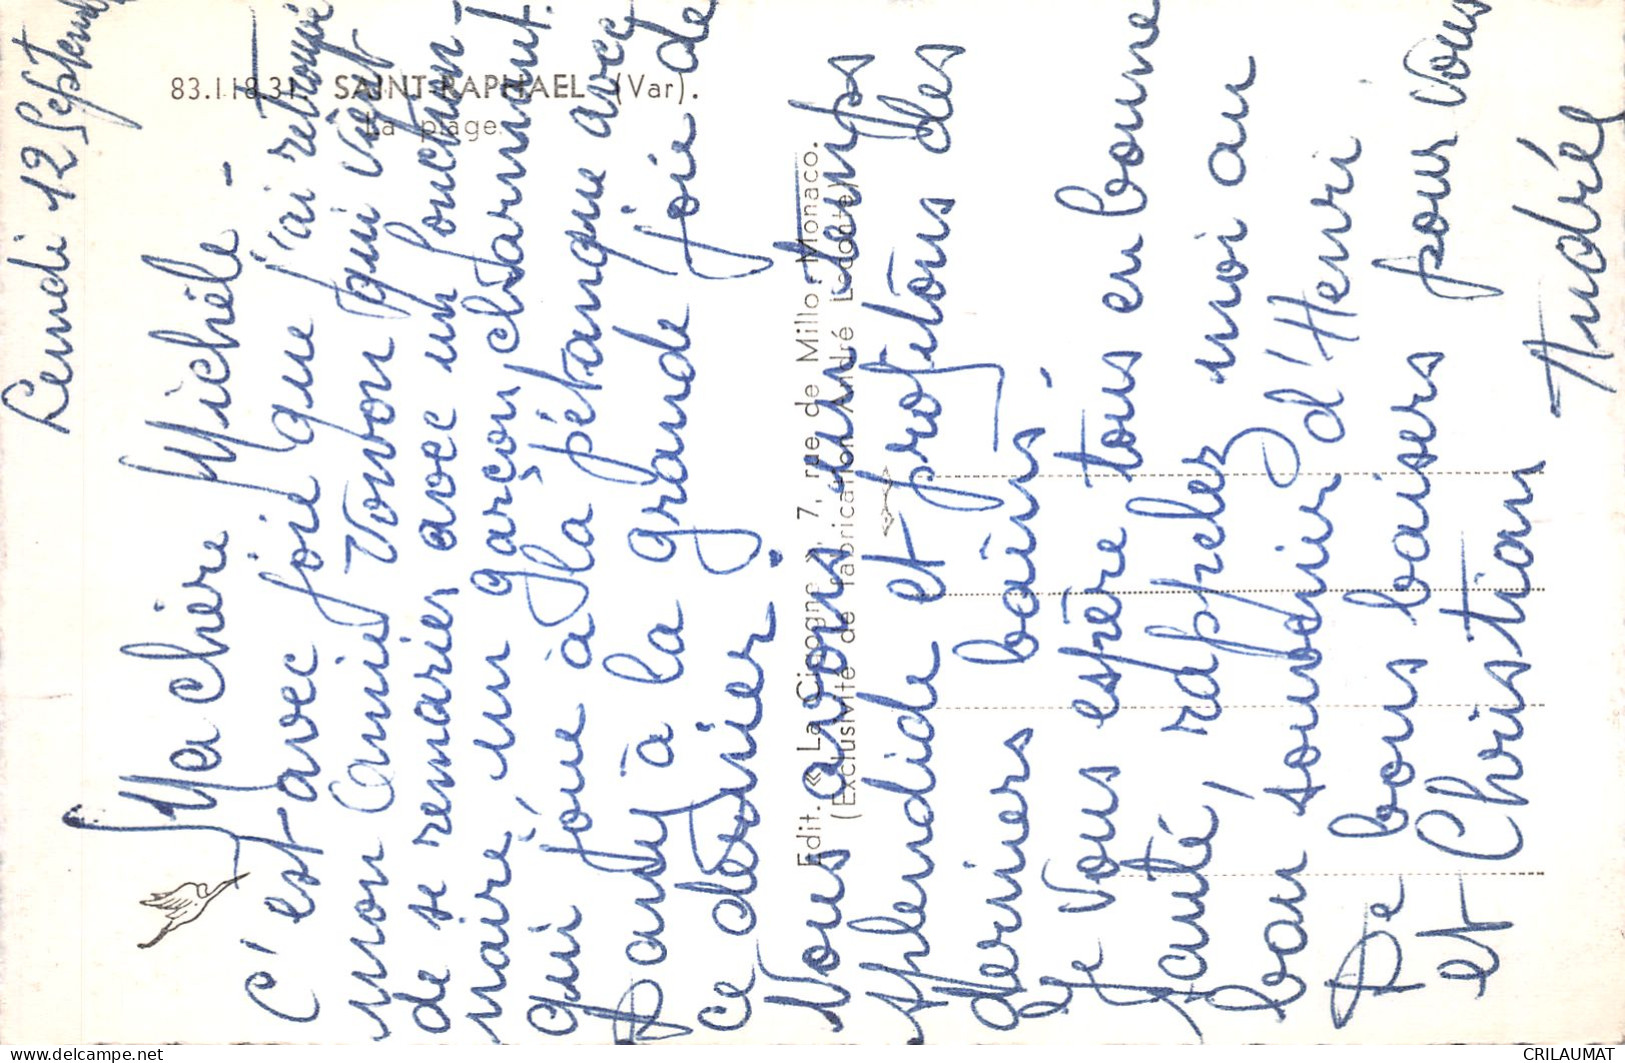 Lundi 12 Septemb
83.118.31. SAINT-RAPHAEL (Var).
La plage.
Ma chère Michèle -
C'est avec joie que j'ai retrouvé
mon amie Vonvon qui vient
de se remarier avec un fonction-
naire, un garçon charmant.
qui joue à la pétanque avec
Dandy à la grande joie de
ce dernier.
Nous avons un temps
splendide et profitons des
derniers bains.
Je vous espère tous en bonne
santé, rappelez moi au
bon souvenir d'Henri
De bons baisers pour vous
et Christian
Andrée
Edit. « La Cigogne », 7, rue de Millo - Monaco.
(Exclusivité de fabrication André Leconte)
delcampe.net
CRILAUMAT